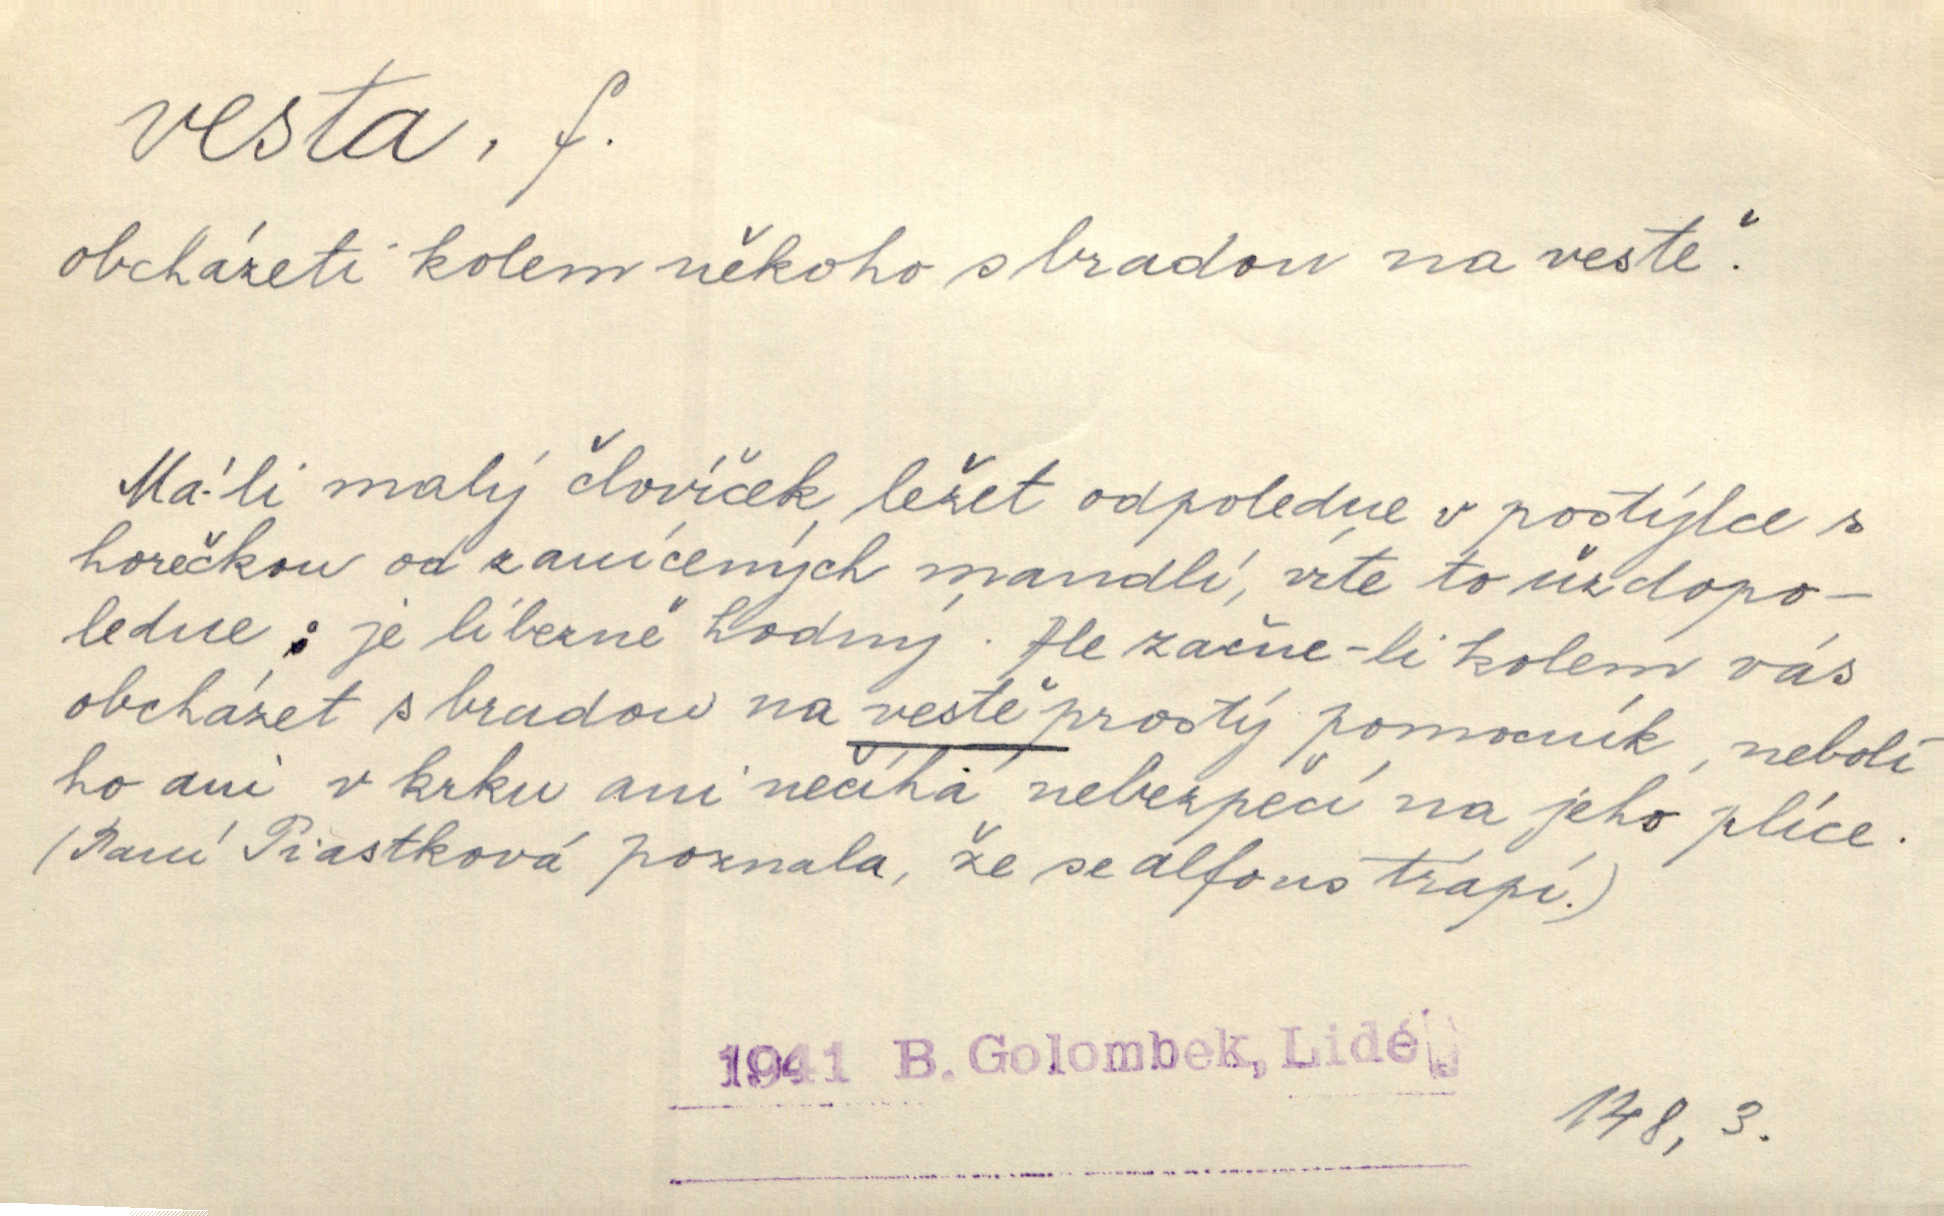 vesta, f.
obcházeti kolem někoho s bradou na vestě:
Má-li malý človíček ležet odpoledne v postýlce s
horečkou od zanícených mandlí, víte to už dopo-
ledne: je líbezně hodný. Ale začne-li kolem vás
obcházet s bradou na vestě prostý pomocník, nebolí
ho ani v krku ani nečíhá nebezpečí na jeho plíce.
(Paní Piastková poznala, že se alfons trápí.)
1941 B. Golombek, Lidé
148, 3.